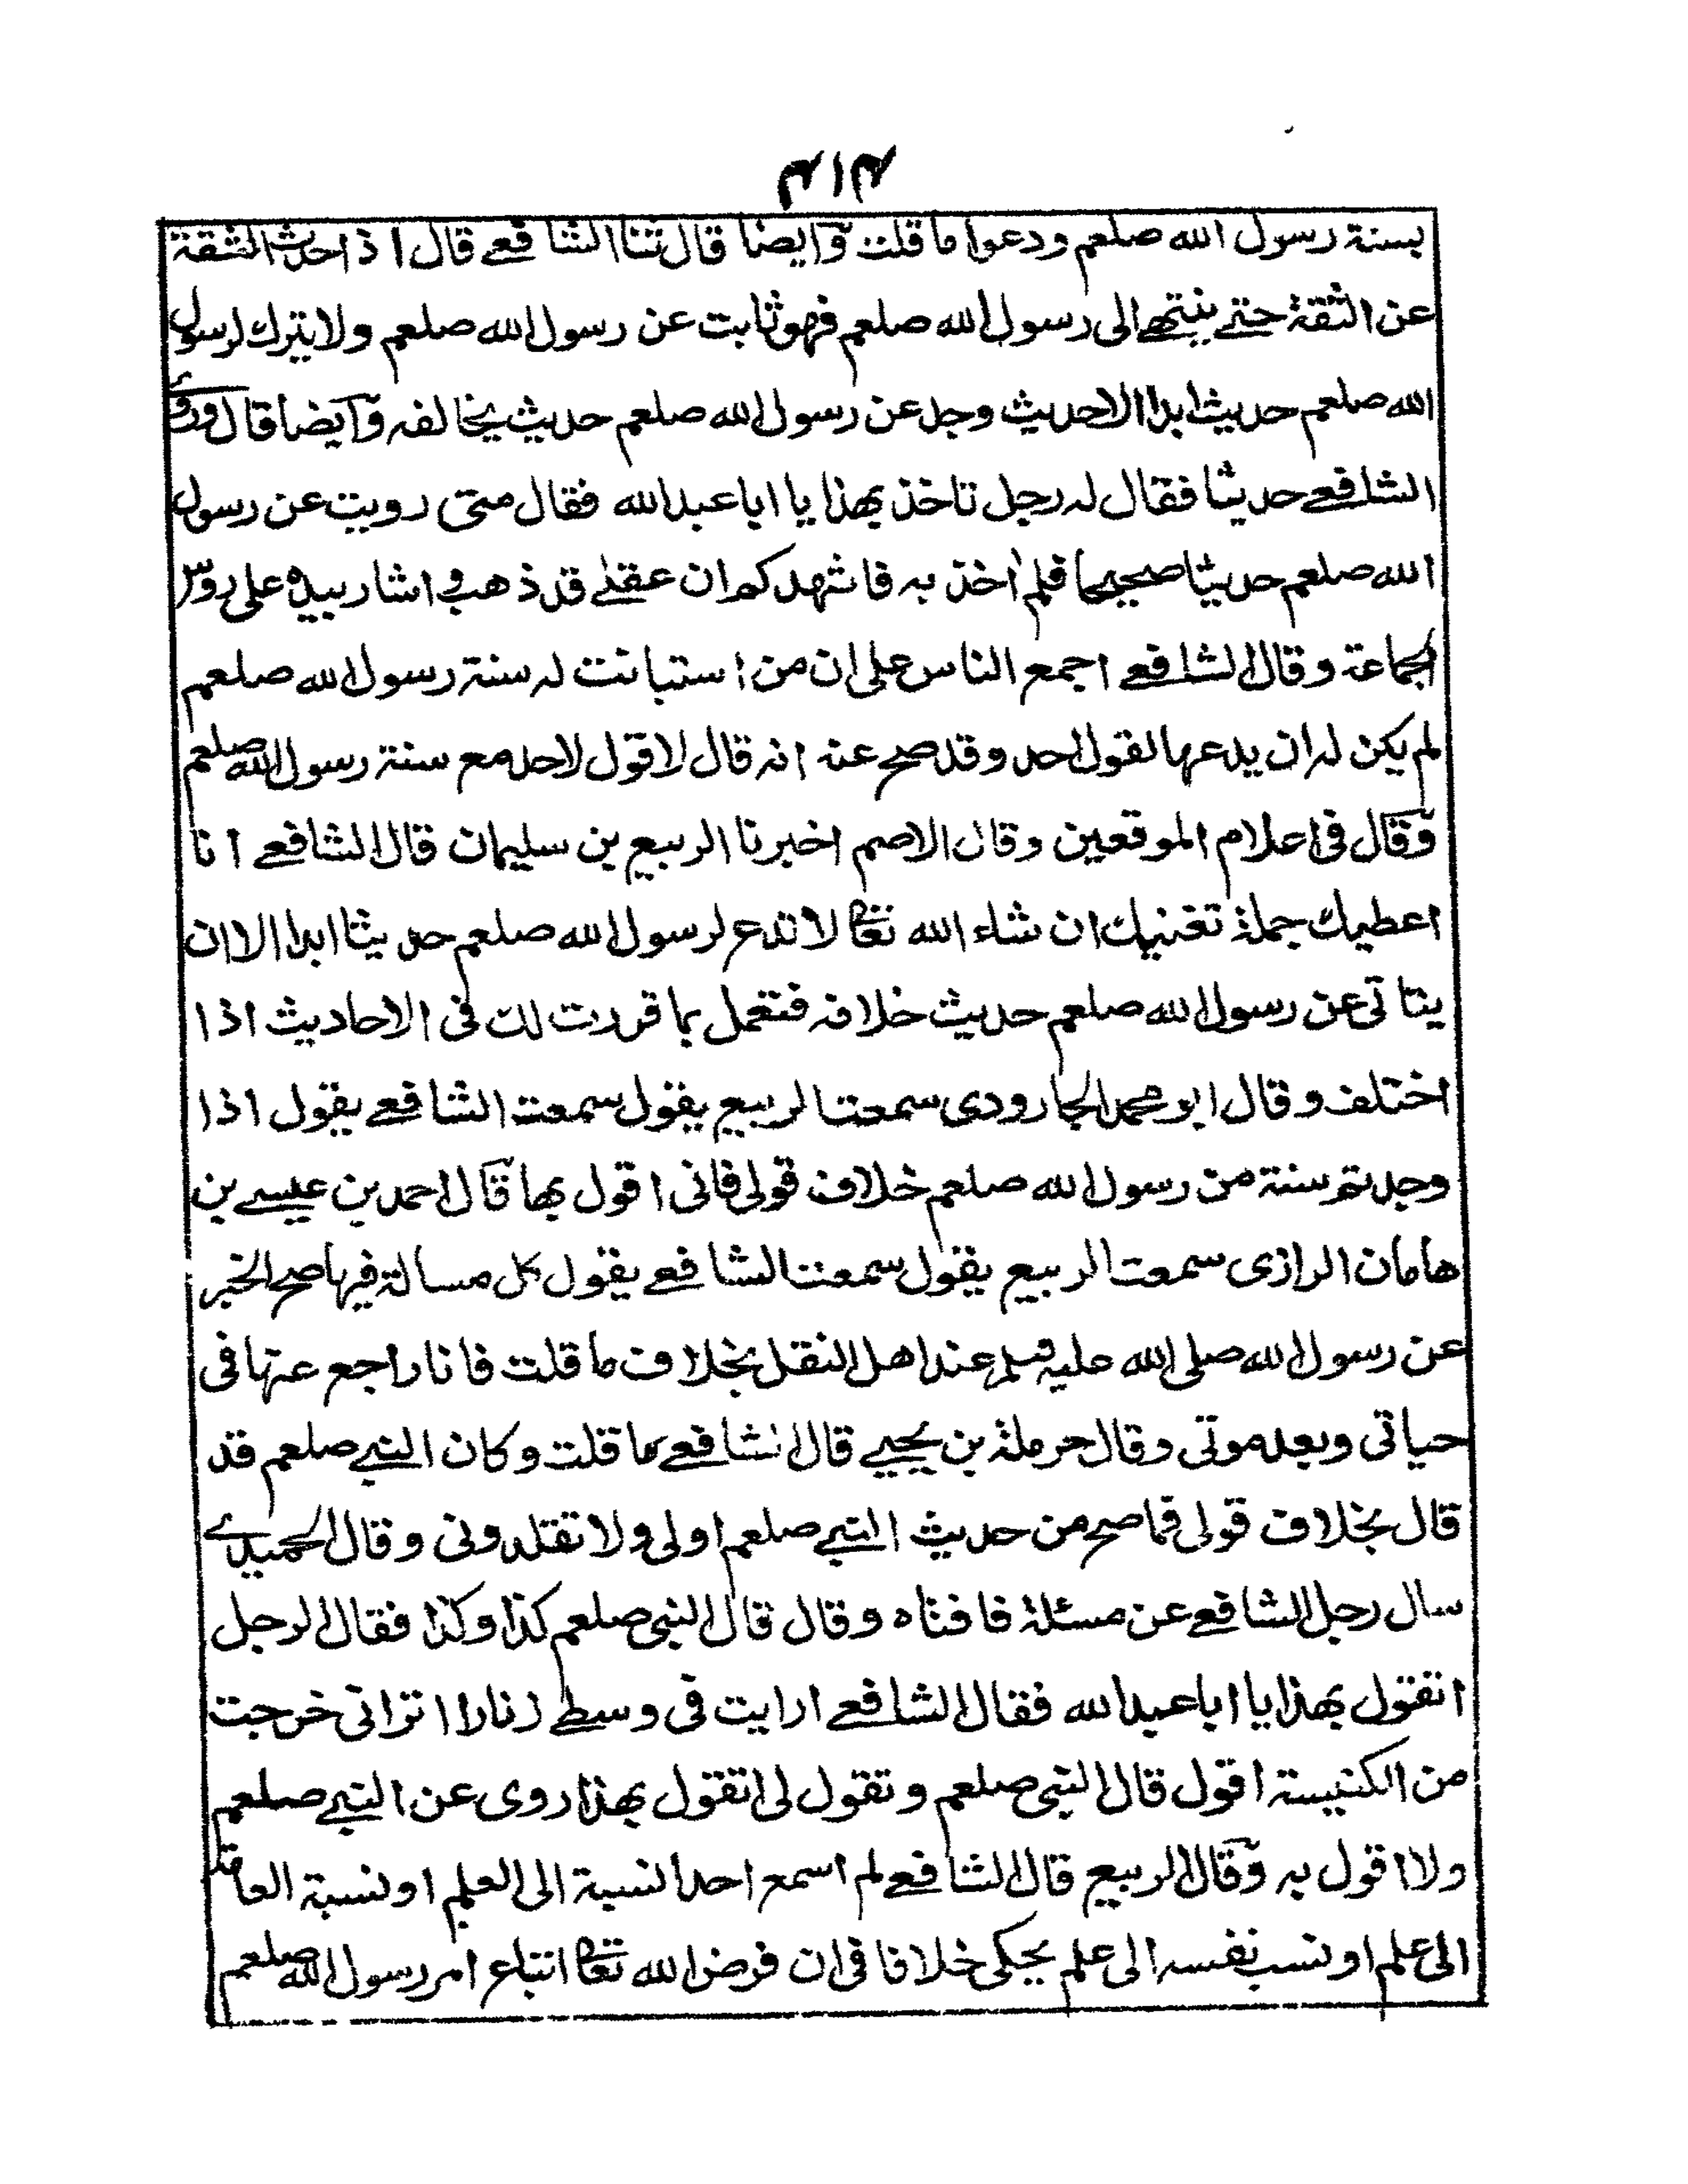 ٤١٤
بسنة رسول الله صلعم ودعوا ما قلت وايضا قال ثنا الشافعے قال اذا حدث الثقة
عن الثقة حتے ينتهے الى رسول الله صلعم فهو ثابت عن رسول الله صلعم ولا يترك لرسول
الله صلعم حديث ابدا الا حديث وجد عن رسول الله صلعم حديث يخالفه وايضا قال وروى
الشافعے حديثا فقال له رجل تاخذ بهذا يا ابا عبد الله فقال متى رويت عن رسول
الله صلعم حديثا صحيحا فلم اخذ به فاشهدكم ان عقلے قد ذهب و اشار بيده على روس
الجماعة وقال الشافعے اجمع الناس على ان من استبانت له سنة رسول الله صلعم
لم يكن له ان يدعها لقول احد وقد صح عنه انه قال لا قول لاحد مع سنة رسول الله صلعم
وقال فى اعلام الموقعين وقال الاصم اخبرنا الربيع بن سليمان قال الشافعے انا
اعطيك جملة تغنيك ان شاء الله تعالى لا تدع لرسول الله صلعم حديثا ابدا الا ان
يتاتى عن رسول الله صلعم حديث خلافه فتعمل بما قررت لك فى الاحاديث اذا
اختلف وقال ابو محمد الجارودى سمعت الربيع يقول سمعت الشافعے يقول اذا
وجدتم سنة من رسول الله صلعم خلاف قولى فانى اقول بها قال احمد بن عيسے بن
هامان الرازى سمعت الربيع يقول سمعت الشافعے يقول كل مسالة فيها صح الخبر
عن رسول الله صلى الله عليه وسلم عند اهل النقل بخلاف ما قلت فانا راجع عنها فى
حياتى وبعد موتى وقال حرملة بن يحيے قال الشافعے ما قلت وكان النبے صلعم قد
قال بخلاف قولى فما صح من حديث النبے صلعم اولى ولا تقلدونى وقال الحميدے
سال رجل الشافعے عن مسئلة فافتاه وقال قال النبى صلعم كذا وكذا فقال الرجل
اتقول بهذا يا ابا عبد الله فقال الشافعے ارايت فى وسطے زنارا اترانى خرجت
من الكنيسة اقول قال النبى صلعم وتقول لى اتقول بهذا روى عن النبے صلعم
ولا اقول به وقال الربيع قال الشافعے لم اسمع احدا نسبة الى العلم او نسبة العامة
الى علم او نسب نفسه الى علم يحكى خلافا فى ان فرض الله تعالى اتباع امر رسول الله صلعم